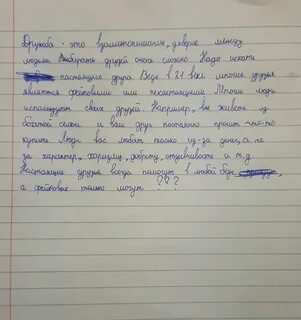 Дружба - это взаимопонимание, доверие между
людьми. Выбирать друзей очень сложно. Надо искать
настоящего друга. Ведь в 21 веке многие друзья
являются фейковыми или ненастоящими. Многие люди
используют своих друзей. Например, вы живете из
богатой семьи и ваш друг постоянно просит что-то
купить. Люди вас любят только из-за денег, а не
за характер, харизму, доброту, отзывчивость и т.д
Настоящие друзья всегда помогут в любой беде,
а фейковые только могут ???